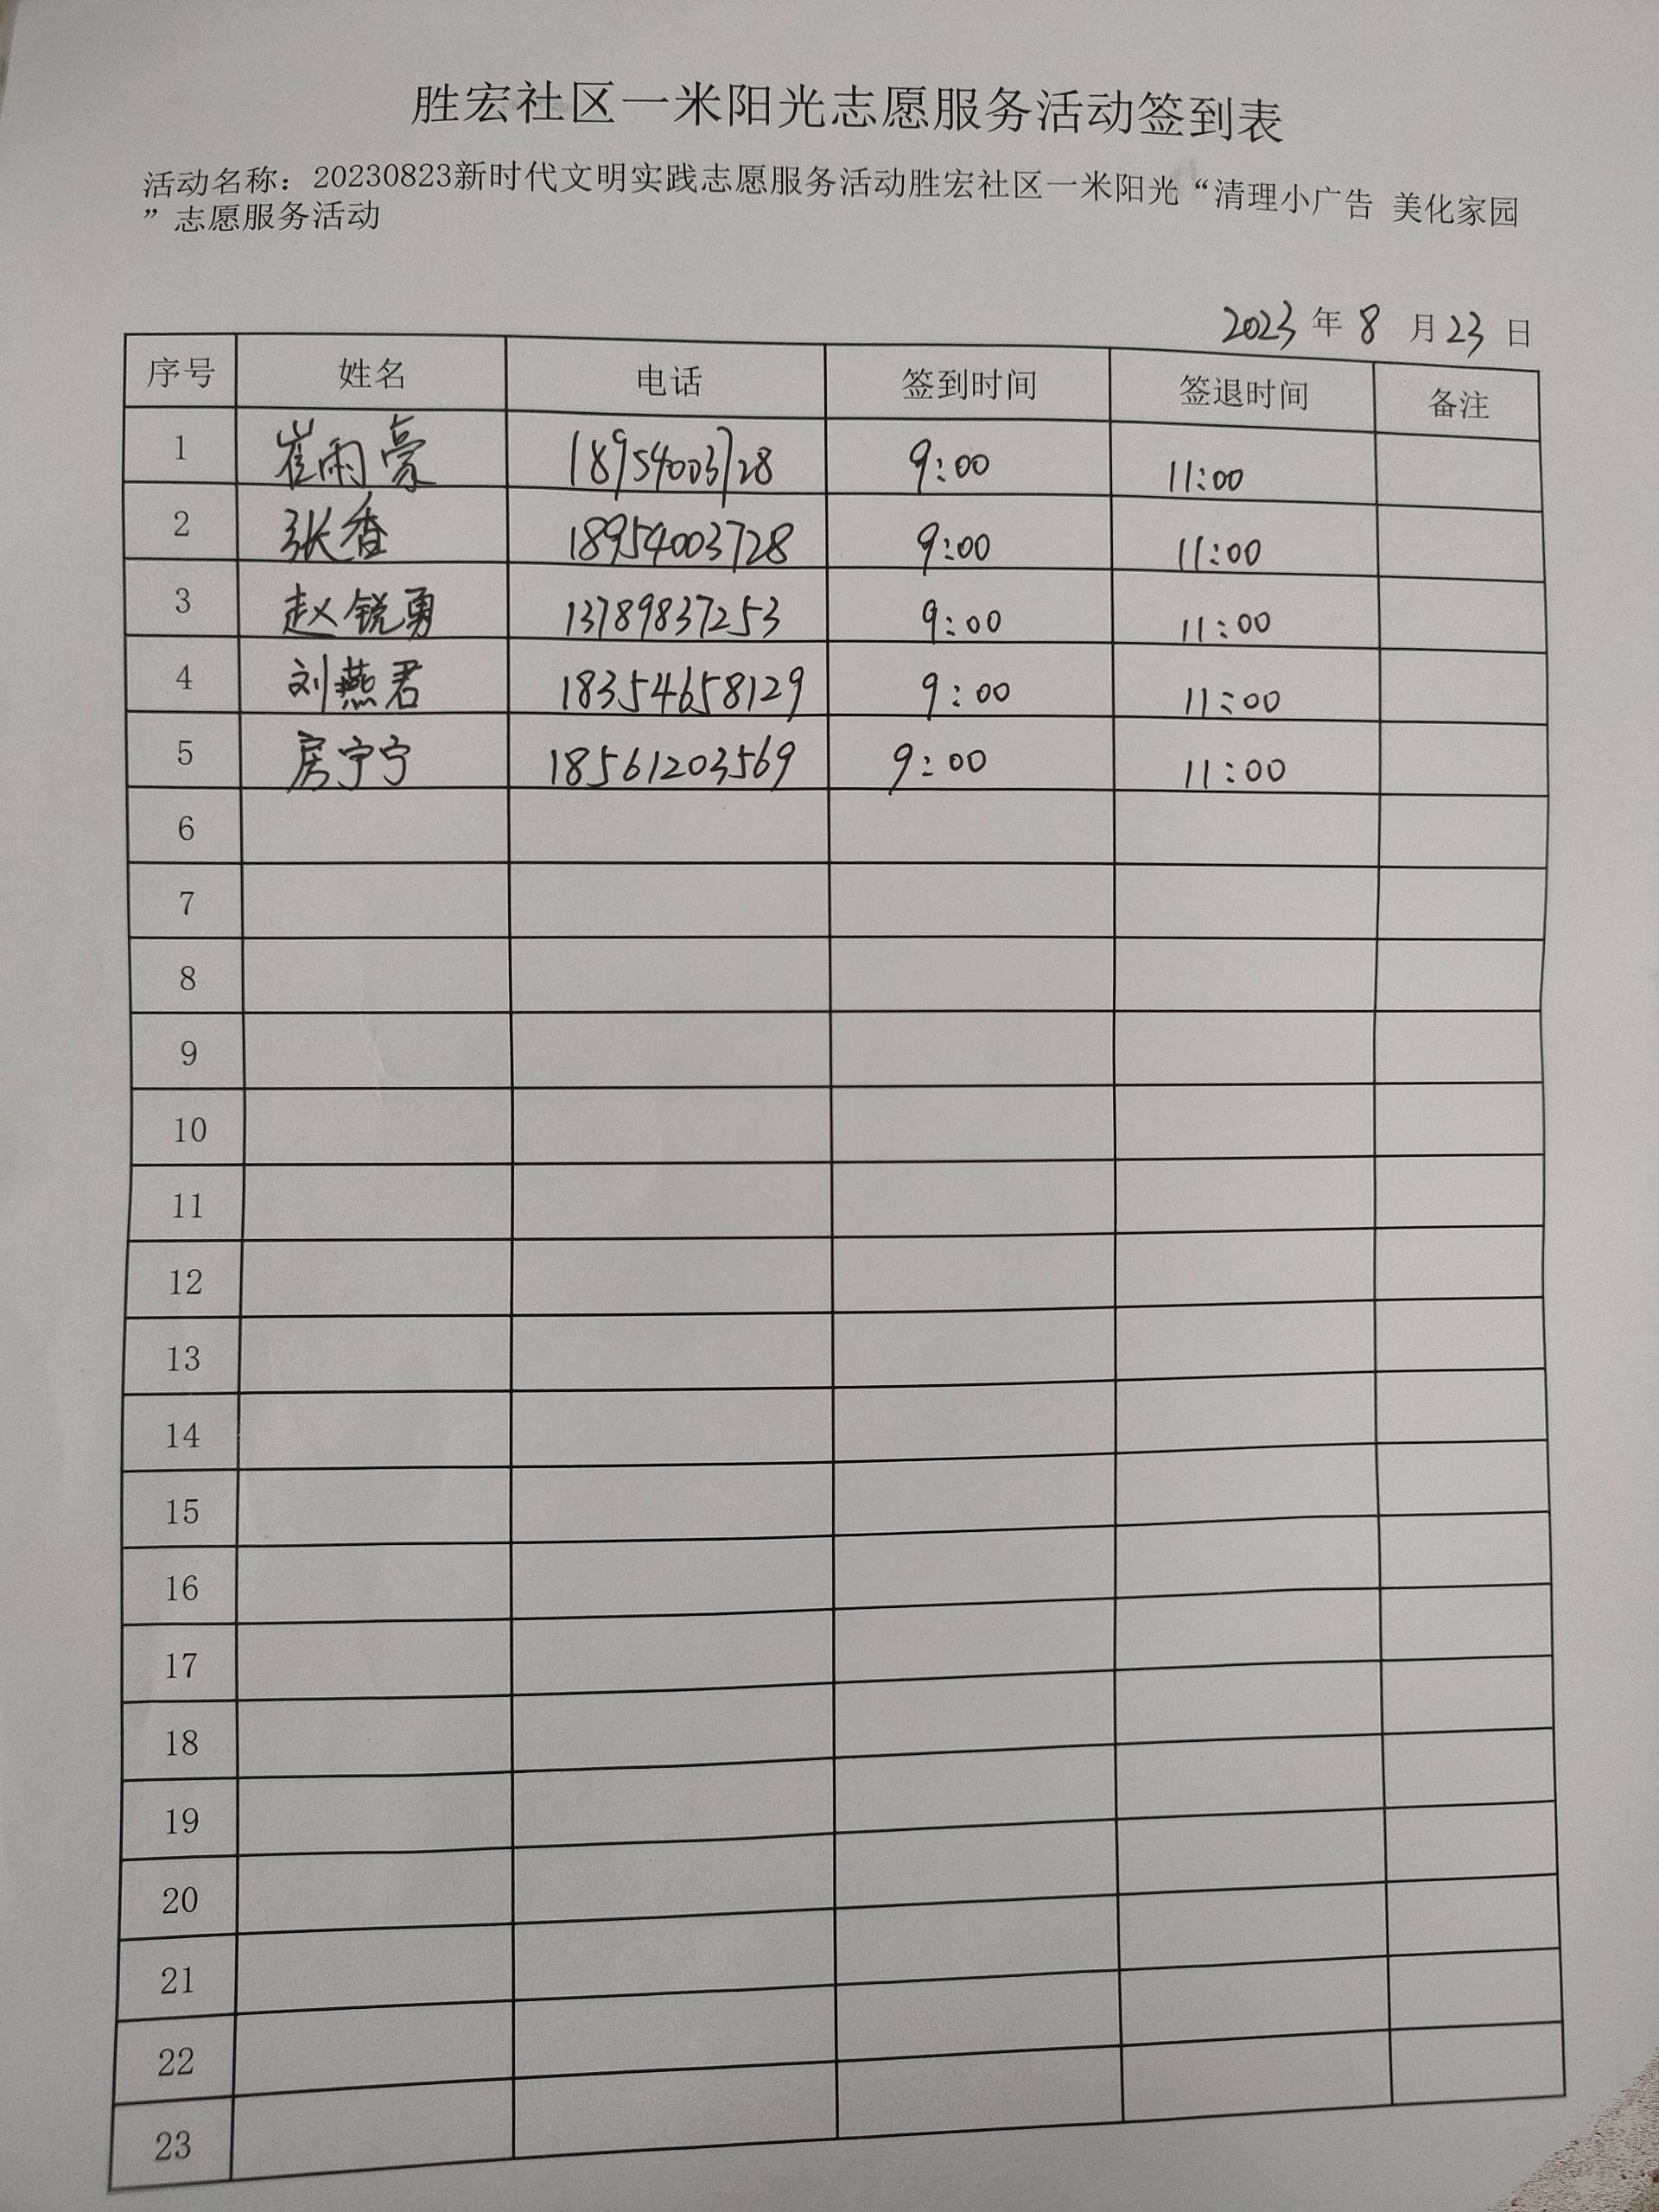 胜宏社区一米阳光志愿服务活动签到表
活动名称：20230823新时代文明实践志愿服务活动胜宏社区一米阳光“清理小广告 美化家园
”志愿服务活动
2023 年 8 月 23 日
序号 姓名 电话 签到时间 签退时间 备注
1 崔雨豪 18954003728 9:00 11:00
2 张香 18954003728 9:00 11:00
3 赵锐勇 13789837253 9:00 11:00
4 刘燕君 18354658129 9:00 11:00
5 房宁宁 18561203569 9:00 11:00
6
7
8
9
10
11
12
13
14
15
16
17
18
19
20
21
22
23